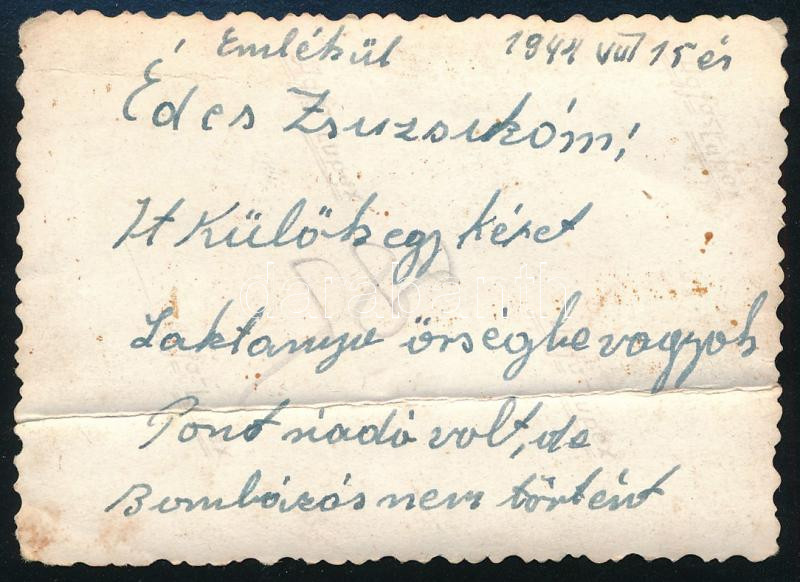 Emlékül 1944 VIII 15 én
Édes Zsuzsikóm!
It Külök egy képet
Laktanya őrségbe vagyok
Pont riadó volt, de
Bombázás nem történt
darabanth